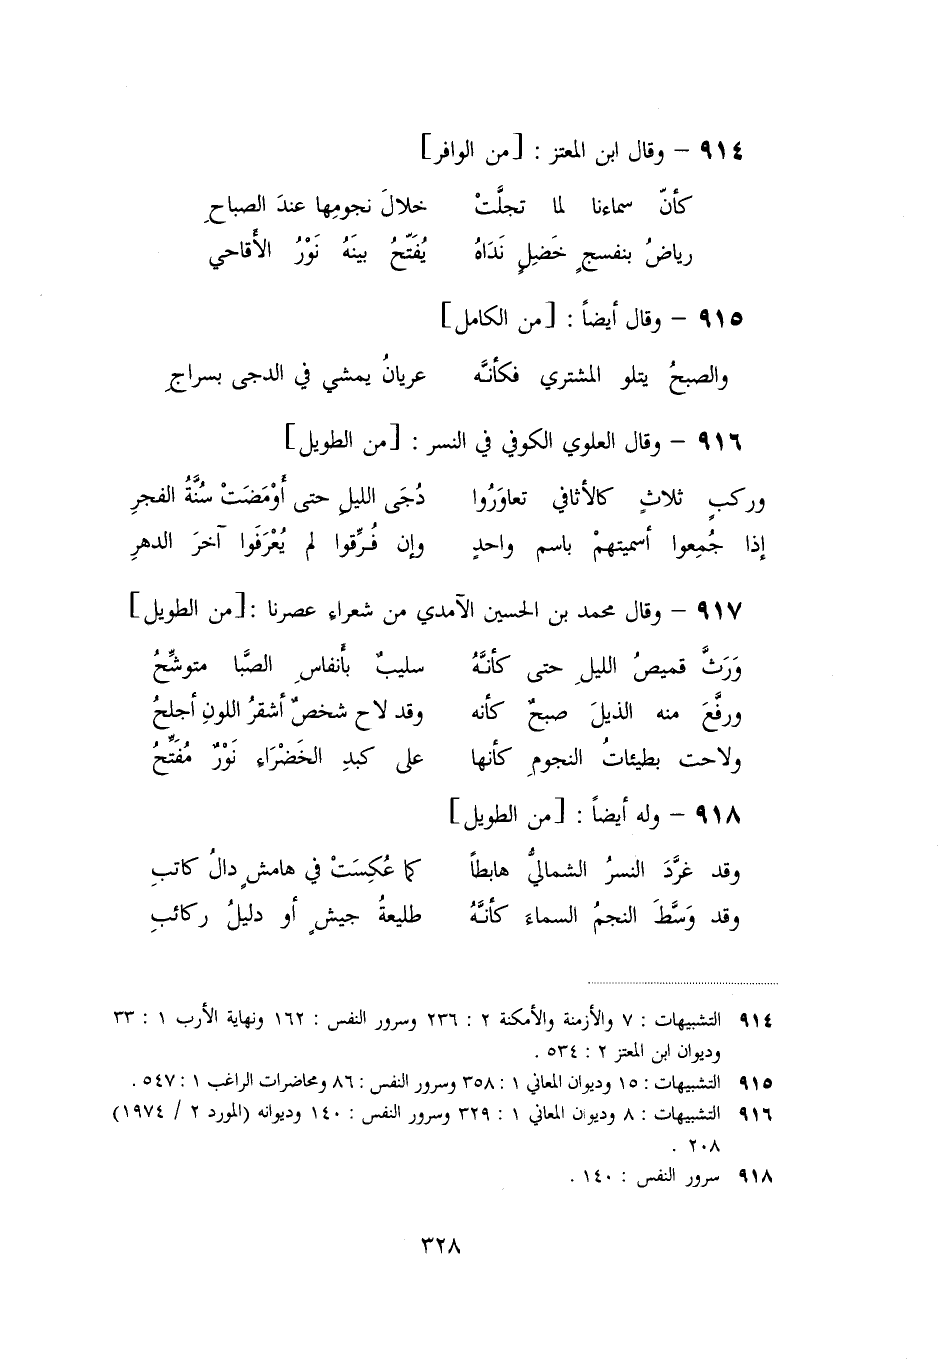 ٩١٤ – وقال ابن المعتز : [من الوافر]
كأنّ سماءنا لما تجلَّتْ خلالَ نجومِها عندَ الصباحِ
رياضُ بنفسجٍ خَضلٍ نَدَاهُ يُفَتّحُ بينَهُ نَوْرُ الأَقاحي
٩١٥ – وقال أيضاً : [من الكامل]
والصبحُ يتلو المشتري فكأنَّه عريانُ يمشي في الدجى بسراجِ
٩١٦ – وقال العلوي الكوفي في النسر : [من الطويل]
وركبٍ ثلاثٍ كالأثافي تعاوَرُوا دُجَى الليلِ حتى أَوْمَضَتْ سُنَّةُ الفجرِ
إذا جُمِعوا أسميتهمْ باسم واحدٍ وإن فُرِّقوا لم يُعْرَفَوا آخرَ الدهرِ
٩١٧ – وقال محمد بن الحسين الآمدي من شعراء عصرنا :[من الطويل]
وَرَثَّ قميصُ الليلِ حتى كأنَّهُ سليبٌ بأَنفاسِ الصَّبا متوشّحُ
ورفَّعَ منه الذيلَ صبحٌ كأنه وقد لاح شخصٌ أشقرُ اللونِ أجلحُ
ولاحت بطيئاتُ النجومِ كأنها على كبدِ الخَضْرَاءِ نَوْرٌ مُفَتَّحُ
٩١٨ – وله أيضاً : [من الطويل]
وقد غرَّدَ النسرُ الشماليُّ هابطاً كما عُكِسَتْ في هامشٍ دالُ كاتبِ
وقد وَسَّطَ النجمُ السماءَ كأنَّهُ طليعةُ جيشٍ أو دليلُ ركائبِ
٩١٤ التشبيهات : ٧ والأزمنة والأمكنة ٢ : ٢٣٦ وسرور النفس : ١٦٢ ونهاية الأرب ١ : ٣٣
وديوان ابن المعتز ٢ : ٥٣٤ .
٩١٥ التشبيهات : ١٥ وديوان المعاني ١ : ٣٥٨ وسرور النفس : ٨٦ ومحاضرات الراغب ١ : ٥٤٧ .
٩١٦ التشبيهات : ٨ وديوان المعاني ١ : ٣٢٩ وسرور النفس : ١٤٠ وديوانه (المورد ٢ / ١٩٧٤)
٢٠٨ .
٩١٨ سرور النفس : ١٤٠ .
٣٢٨